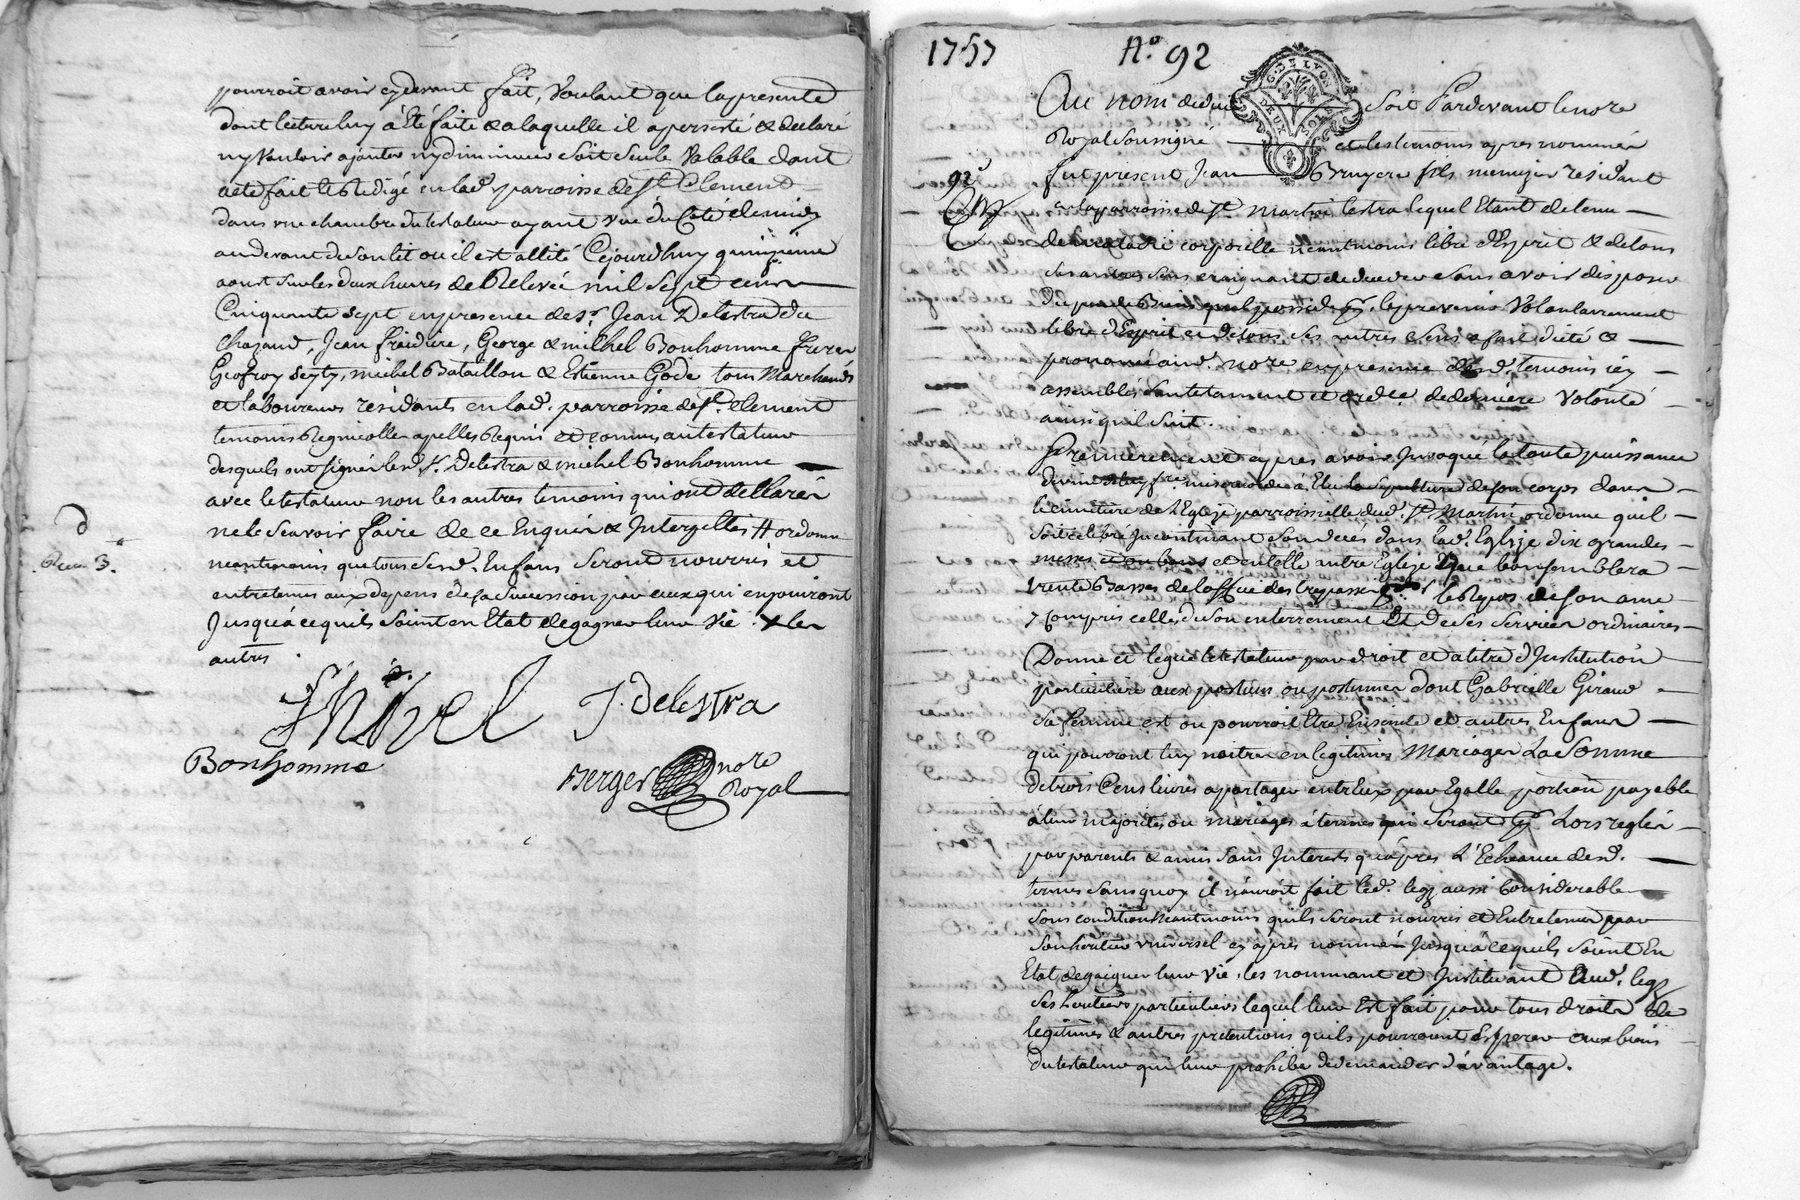 pourroit avoir cydevant fait, Voulant que la presente
dont lecture luy à Eté faite & a laquelle il a persisté & declaré
ny Vouloir ajouter ny diminuer soit seule Valable dont
acte fait & Redigé en lad. parroisse de St. Clement
dans une chambre du testateur ayant vüe du Coté de midy
au devant de son lit ou il est allité Cejourdhuy quinzieme
aoust sur les deux heures de Relevée mil sept cens
Cinquante sept en presence de sr. Jean Delestra du
Chazaud, Jean fraidure, George & michel Bonhomme freres
Geofroy Seyty, michel Bataillon & Estienne Gode tous Marchands
et laboureurs résidants en lad. parroisse de St. Clement
temoins Regnicolles apellés Requis et connus au testateur
desquels ont signé led. sr. Delestra & michel Bonhomme
avec le testateur non les autres temoins qui ont declarés
ne le Scavoir faire de ce Enquis & Interpellés # ordonne
neantmoins que tous sesd. Enfans seront nourris et
entretenus aux depens de sa succession par ceux qui en jouiront
Jusqu'a ce quils soient en Etat de gagner leur vie. & les
autres
Thivel J. Delestra
Bonhomme
Berger nore
Royal
1757 No. 92
G. DE LYON
DEUX SOLS
Au nom de dieu soit Pardevant le nore
Royal soussigné et les temoins apres nommés
92e
fut present Jean Bruyere fils menuzier résidant
en la parroisse de St. martin lestra lequel Etant detenu
de maladie corporelle neantmoins libre d'Esprit & de tous
ses autres sens craignant de deceder sans avoir disposé
du peu de Biens quil possede, il a prevenu Volontairement
libre d'Esprit en de tous ses autres sens a fait dicté &
prononcé aud. nore en presence desd. temoins icy
assemblés son testament et ordce. de derniere Volonté
ainsi quil suit.
Premierement apres avoir Jnvoqué la toute puissance
divine
le cimetiere de l'Eglize parroissielle dud. St. Martin ordonne quil
soit celebré Jncontinant son décés dans lad. Eglize dix grandes
messes et en telle autre Eglize que bon semblera
trente Basses de l'office des trepassés le Repos de son ame
y compris celles de son enterrement et de ses services ordinaires
Donne et legue le testateur par droit et a titre d'Jnstitution
particuliere aux postume ou postumes dont Gabrielle Giraud
sa femme est ou pourroit Etre Enceinte et autres Enfans
qui pourront luy naitre en legitimes Mariages La Somme
de trois Cens livres a partager entr'eux par Egalle portion payable
à leur majorités ou mariages à termes qui seront Lors reglés
par parents & amis sans Jnterests qu'apres L'Echeance desd.
termes sans quoy il n'auroit fait led. legs aussi Considerable
sous condition neantmoins quils seront nourris et Entretenus par
son heritier universel cy apres nommé Jusqu'a ce quils soient En
Etat de gaigner leur vie, les nommant et Jnstituant aud. legs
ses heritiers particuliers lequel leur Est fait pour tous droits de
legitimes & autres pretentions quils pourroient Esperer aux biens
du testateur qui leur prohibe de demander d'avantage.